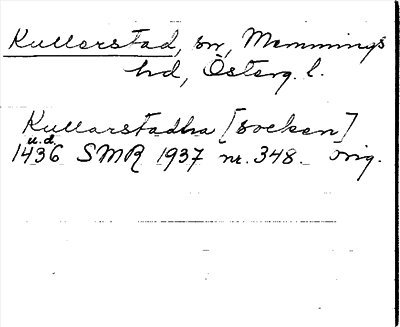 Kullerstad, sn, Memmings
hd, Österg. l.
Kullarstadha [socken]
u.d.
1436 SMR 1937 nr. 348. orig.